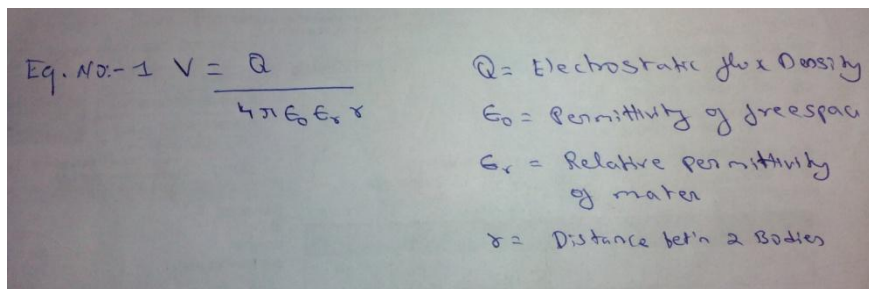 Eq. No:- 1 V = Q
4π ϵ₀ ϵᵣ r
Q = Electrostatic flux Density
ϵ₀ = Permittivity of freespac
ϵᵣ = Relative permittivity
of mater
r = Distance bet'n 2 Bodies